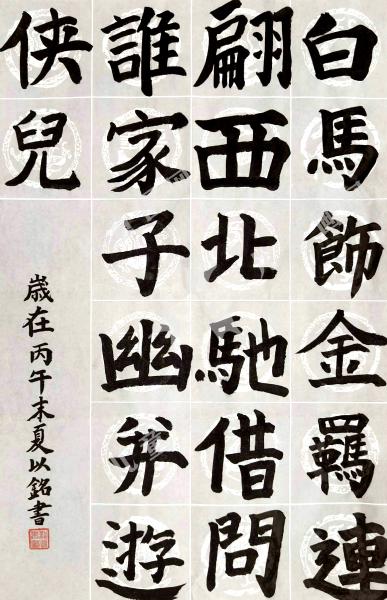 白馬飾金羈連
翩西北馳借問
誰家子幽并遊
俠兒
歳在丙午末夏以銘書